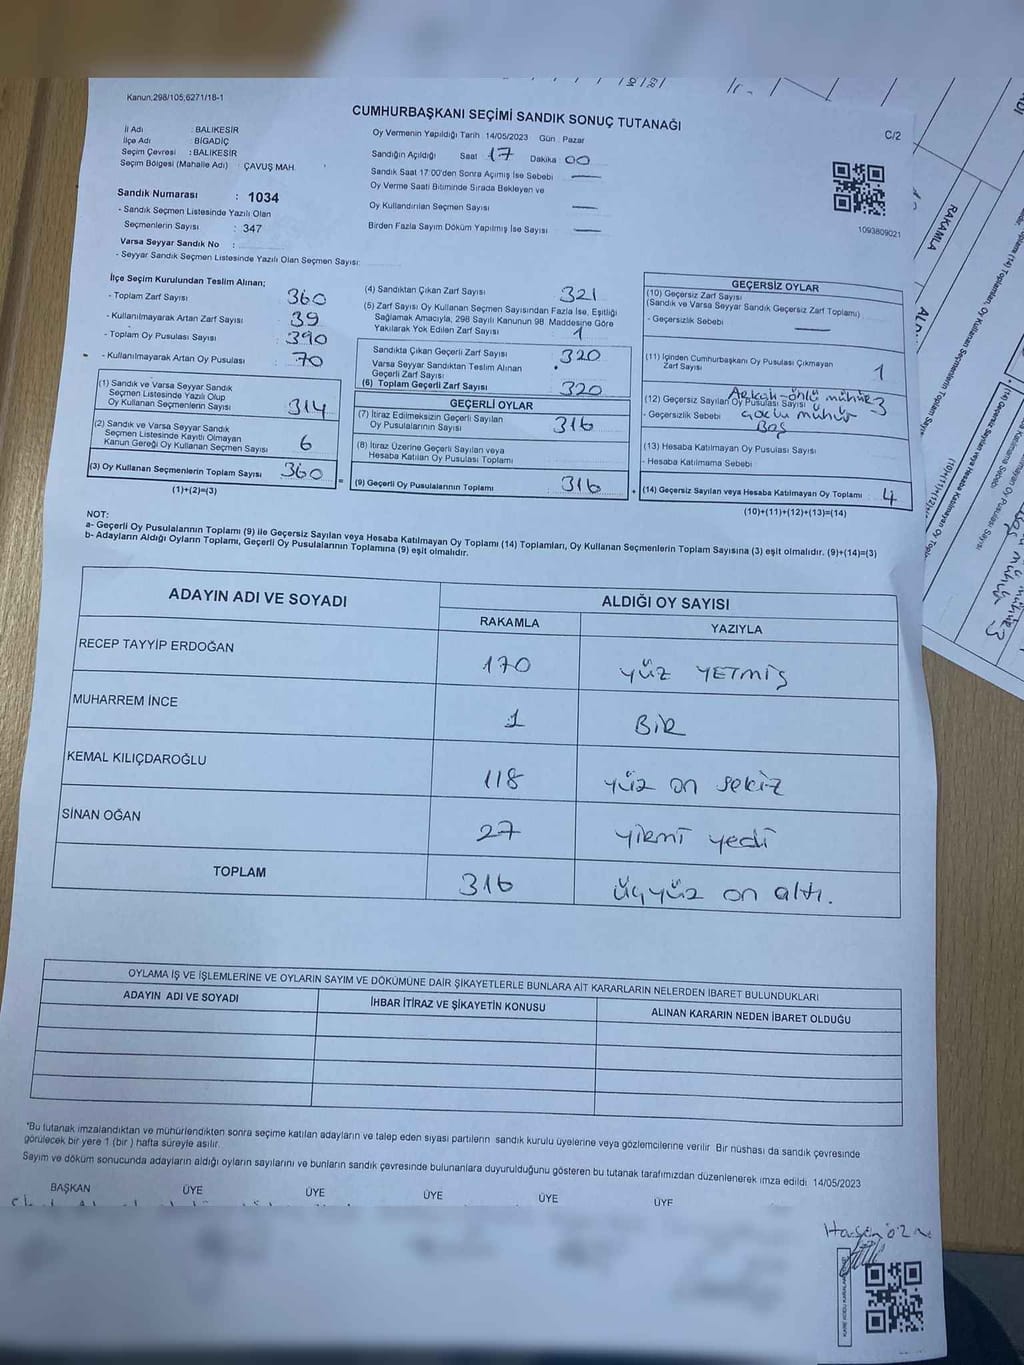 Kanun;298/105;6271/18-1
CUMHURBAŞKANI SEÇİMİ SANDIK SONUÇ TUTANAĞI
C/2
İl Adı : BALIKESİR
İlçe Adı : BİGADİÇ
Seçim Çevresi : BALIKESİR
Seçim Bölgesi (Mahalle Adı) : ÇAVUŞ MAH.
Sandık Numarası : 1034
- Sandık Seçmen Listesinde Yazılı Olan
Seçmenlerin Sayısı : 347
Varsa Seyyar Sandık No :
- Seyyar Sandık Seçmen Listesinde Yazılı Olan Seçmen Sayısı:
Oy Vermenin Yapıldığı Tarih 14/05/2023 Gün Pazar
Sandığın Açıldığı Saat 17 Dakika 00
Sandık Saat 17 00'den Sonra Açımış İse Sebebi —
Oy Verme Saati Bitiminde Sırada Bekleyen ve
Oy Kullandırılan Seçmen Sayısı —
Birden Fazla Sayım Döküm Yapılmış İse Sayısı —
1093809021
İlçe Seçim Kurulundan Teslim Alınan;
- Toplam Zarf Sayısı : 360
- Kullanılmayarak Artan Zarf Sayısı : 39
- Toplam Oy Pusulası Sayısı : 390
- Kullanılmayarak Artan Oy Pusulası : 70
(1) Sandık ve Varsa Seyyar Sandık
Seçmen Listesinde Yazılı Olup
Oy Kullanan Seçmenlerin Sayısı : 314
(2) Sandık ve Varsa Seyyar Sandık
Seçmen Listesinde Kayıtlı Olmayan
Kanun Gereği Oy Kullanan Seçmen Sayısı : 6
(3) Oy Kullanan Seçmenlerin Toplam Sayısı : 360
(1)+(2)=(3)
(4) Sandıktan Çıkan Zarf Sayısı 321
(5) Zarf Sayısı Oy Kullanan Seçmen Sayısından Fazla İse, Eşitliği
Sağlamak Amacıyla, 298 Sayılı Kanunun 98. Maddesine Göre
Yakılarak Yok Edilen Zarf Sayısı 1
Sandıkta Çıkan Geçerli Zarf Sayısı 320
Varsa Seyyar Sandıktan Teslim Alınan
Geçerli Zarf Sayısı
(6) Toplam Geçerli Zarf Sayısı 320
GEÇERLİ OYLAR
(7) İtiraz Edilmeksizin Geçerli Sayılan
Oy Pusulalarının Sayısı 316
(8) İtiraz Üzerine Geçerli Sayılan veya
Hesaba Katılan Oy Pusulası Toplamı
(9) Geçerli Oy Pusulalarının Toplamı 316
GEÇERSİZ OYLAR
(10) Geçersiz Zarf Sayısı
(Sandık ve Varsa Seyyar Sandık Geçersiz Zarf Toplamı)
- Geçersizlik Sebebi —
(11) İçinden Cumhurbaşkanı Oy Pusulası Çıkmayan
Zarf Sayısı 1
(12) Geçersiz Sayılan Oy Pusulası Sayısı Arkalı-önlü mühür 3
- Geçersizlik Sebebi mühür
Boş
(13) Hesaba Katılmayan Oy Pusulası Sayısı
- Hesaba Katılmama Sebebi
(14) Geçersiz Sayılan veya Hesaba Katılmayan Oy Toplamı 4
(10)+(11)+(12)+(13)=(14)
NOT:
a- Geçerli Oy Pusulalarının Toplamı (9) ile Geçersiz Sayılan veya Hesaba Katılmayan Oy Toplamı (14) Toplamları, Oy Kullanan Seçmenlerin Toplam Sayısına (3) eşit olmalıdır. (9)+(14)=(3)
b- Adayların Aldığı Oyların Toplamı, Geçerli Oy Pusulalarının Toplamına (9) eşit olmalıdır.
ADAYIN ADI VE SOYADI
ALDIĞI OY SAYISI
RAKAMLA YAZIYLA
RECEP TAYYİP ERDOĞAN 170 yüz YETMİŞ
MUHARREM İNCE 1 BİR
KEMAL KILIÇDAROĞLU 118 yüz on sekiz
SİNAN OĞAN 27 yirmi yedi
TOPLAM 316 üçyüz on altı.
OYLAMA İŞ VE İŞLEMLERİNE VE OYLARIN SAYIM VE DÖKÜMÜNE DAİR ŞİKAYETLERLE BUNLARA AİT KARARLARIN NELERDEN İBARET BULUNDUKLARI
ADAYIN ADI VE SOYADI İHBAR İTİRAZ VE ŞİKAYETİN KONUSU ALINAN KARARIN NEDEN İBARET OLDUĞU
*Bu tutanak imzalandıktan ve mühürlendikten sonra seçime katılan adayların ve talep eden siyasi partilerin sandık kurulu üyelerine veya gözlemcilerine verilir. Bir nüshası da sandık çevresinde
görülecek bir yere 1 (bir ) hafta süreyle asılır.
Sayım ve döküm sonucunda adayların aldığı oyların sayılarını ve bunların sandık çevresinde bulunanlara duyurulduğunu gösteren bu tutanak tarafımızdan düzenlenerek imza edildi. 14/05/2023
BAŞKAN ÜYE ÜYE ÜYE ÜYE ÜYE